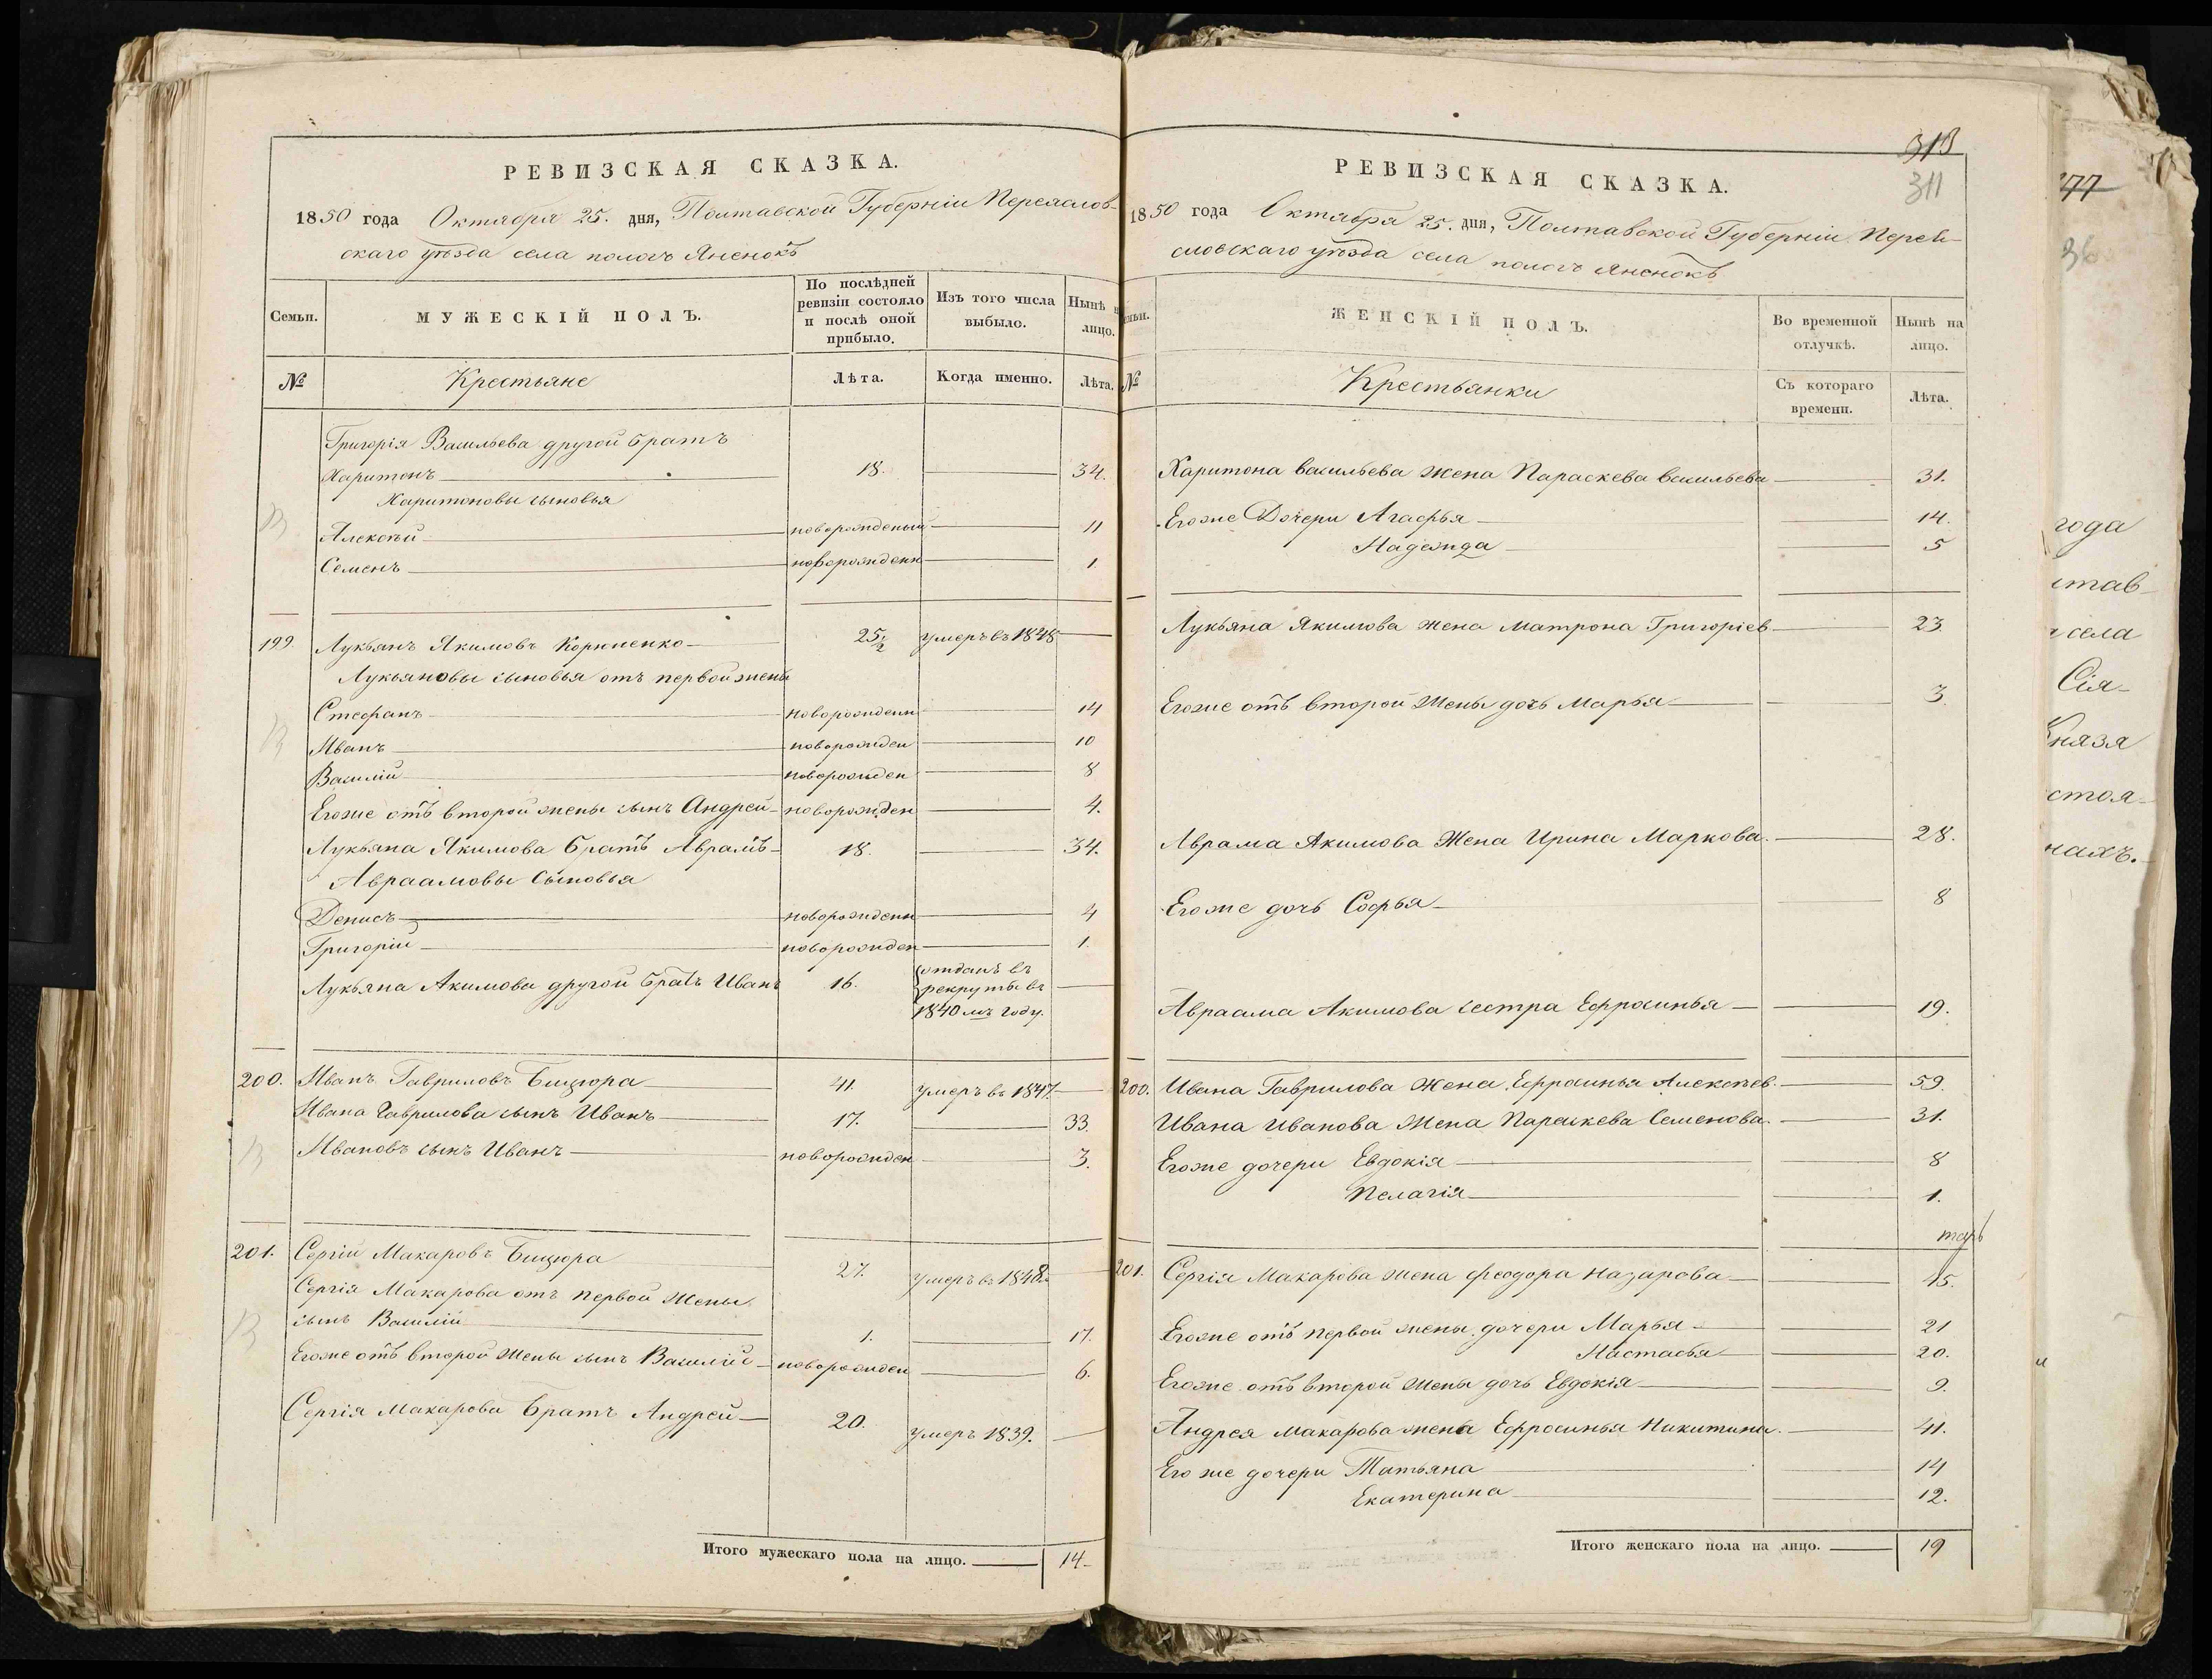 РЕВИЗСКАЯ СКАЗКА.
1850 года Октября 25. дня, Полтавской Губерніи Переяслов-
скаго уѣзда села пологъ Яненокъ
Семьи.
МУЖЕСКІЙ ПОЛЪ.
По послѣдней ревизіи состояло и послѣ оной прибыло.
Изъ того числа выбыло.
Нынѣ на лицо.
№
Крестьяне
Лѣта.
Когда именно.
Лѣта.
Григорія Васильева другой братъ
Харитонъ 18. 34.
Харитоновы сыновья
Алексѣй новорожденый 11
Семенъ новорожденн 1
199. Лукьянъ Якимовъ Корниенко 25½ умеръ въ 1848
Лукьяновы сыновья отъ первой жены
Стефанъ новорожденн 14
Иванъ новорожден 10
Василій новорожден 8
Егоже отъ второй жены сынъ Андрей новорожден 4.
Лукьяна Якимова братъ Аврамъ 18. 34.
Авраамовы сыновья
Денисъ новорожденн 4
Григорій новорожден 1.
Лукьяна Акимова другой братъ Иванъ 16. отданъ въ
рекруты въ
1840 мъ году.
200. Иванъ Гавриловъ Бицюра 41. умеръ въ 1847.
Ивана Гаврилова сынъ Иванъ 17. 33.
Ивановъ сынъ Иванъ новорожден 3.
201. Сергій Макаровъ Бицюра 27. умеръ въ 1848.
Сергія Макарова отъ первой жены
сынъ Василій 1. 17.
Егоже отъ второй жены сынъ Василій новорожден 6.
Сергія Макарова братъ Андрей 20. умеръ 1839.
Итого мужескаго пола на лицо. 14
311
РЕВИЗСКАЯ СКАЗКА.
1850 года Октября 25. дня, Полтавской Губерніи Перея-
словскаго уѣзда села пологъ Яненокъ
Семьи.
ЖЕНСКІЙ ПОЛЪ.
Во временной отлучкѣ.
Нынѣ на лицо.
№
Крестьянки
Съ котораго времени.
Лѣта.
Харитона васильева жена Параскева васильева 31.
Егоже Дочери Агафья 14.
Надежда 5
Лукьяна Якимова жена Матрона Григоріев 23
Егоже отъ второй жены дочь Марья 3
Аврама Акимова Жена Ирина Маркова 28.
Егоже дочь Софья 8
Авраама Акимова сестра Ефросинья 19.
200. Ивана Гаврилова жена Ефросинья Алексѣев. 59.
Ивана Иванова жена Параскева Семенова. 31.
Егоже дочери Евдокія 8
Пелагія 1.
201. Сергія Макарова жена феодора Назарова 45.
Егоже отъ первой жены дочери Марья 21
Настасья 20.
Егоже отъ второй жены дочь Евдокія 9.
Андрея Макарова жена Ефросинья Никитина. 41.
Его же дочери Татьяна 14
Екатерина 12.
Итого женскаго пола на лицо. 19
77
36
года
тав-
села
Сія-
Князя
стоя-
нахъ.